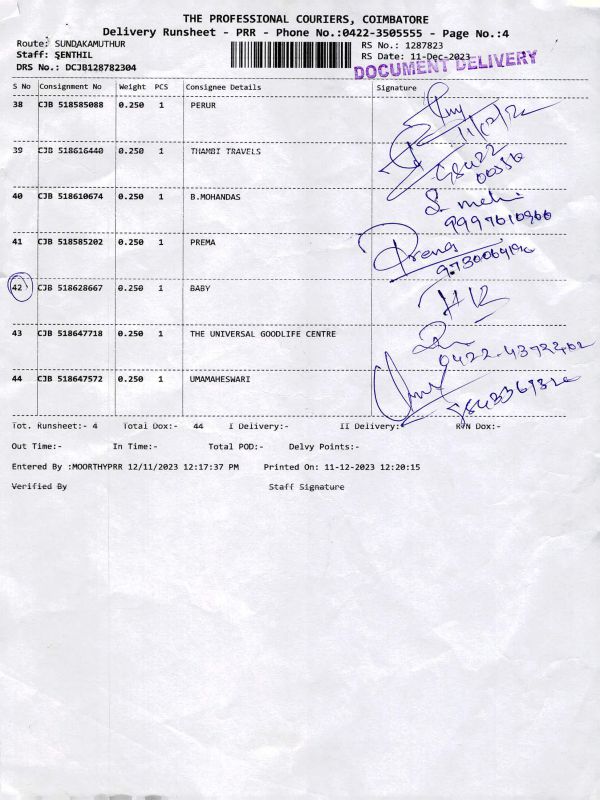 THE PROFESSIONAL COURIERS, COIMBATORE
Delivery Runsheet - PRR - Phone No.:0422-3505555 - Page No.:4
Route: SUNDAKAMUTHUR RS No.: 1287823
Staff: SENTHIL RS Date: 11-Dec-2023
DRS No.: DCJB128782304
DOCUMENT DELIVERY
S No Consignment No Weight PCS Consignee Details Signature
38 CJB 518585088 0.250 1 PERUR
11/12/2
39 CJB 518616440 0.250 1 THAMBI TRAVELS
40 CJB 518610674 0.250 1 B.MOHANDAS
41 CJB 518585202 0.250 1 PREMA
Prema
42 CJB 518628667 0.250 1 BABY
43 CJB 518647718 0.250 1 THE UNIVERSAL GOODLIFE CENTRE
44 CJB 518647572 0.250 1 UMAMAHESWARI
Tot. Runsheet:- 4 Total Dox:- 44 I Delivery:- II Delivery:- RTN Dox:-
Out Time:- In Time:- Total POD:- Delvy Points:-
Entered By :MOORTHYPRR 12/11/2023 12:17:37 PM Printed On: 11-12-2023 12:20:15
Verified By Staff Signature